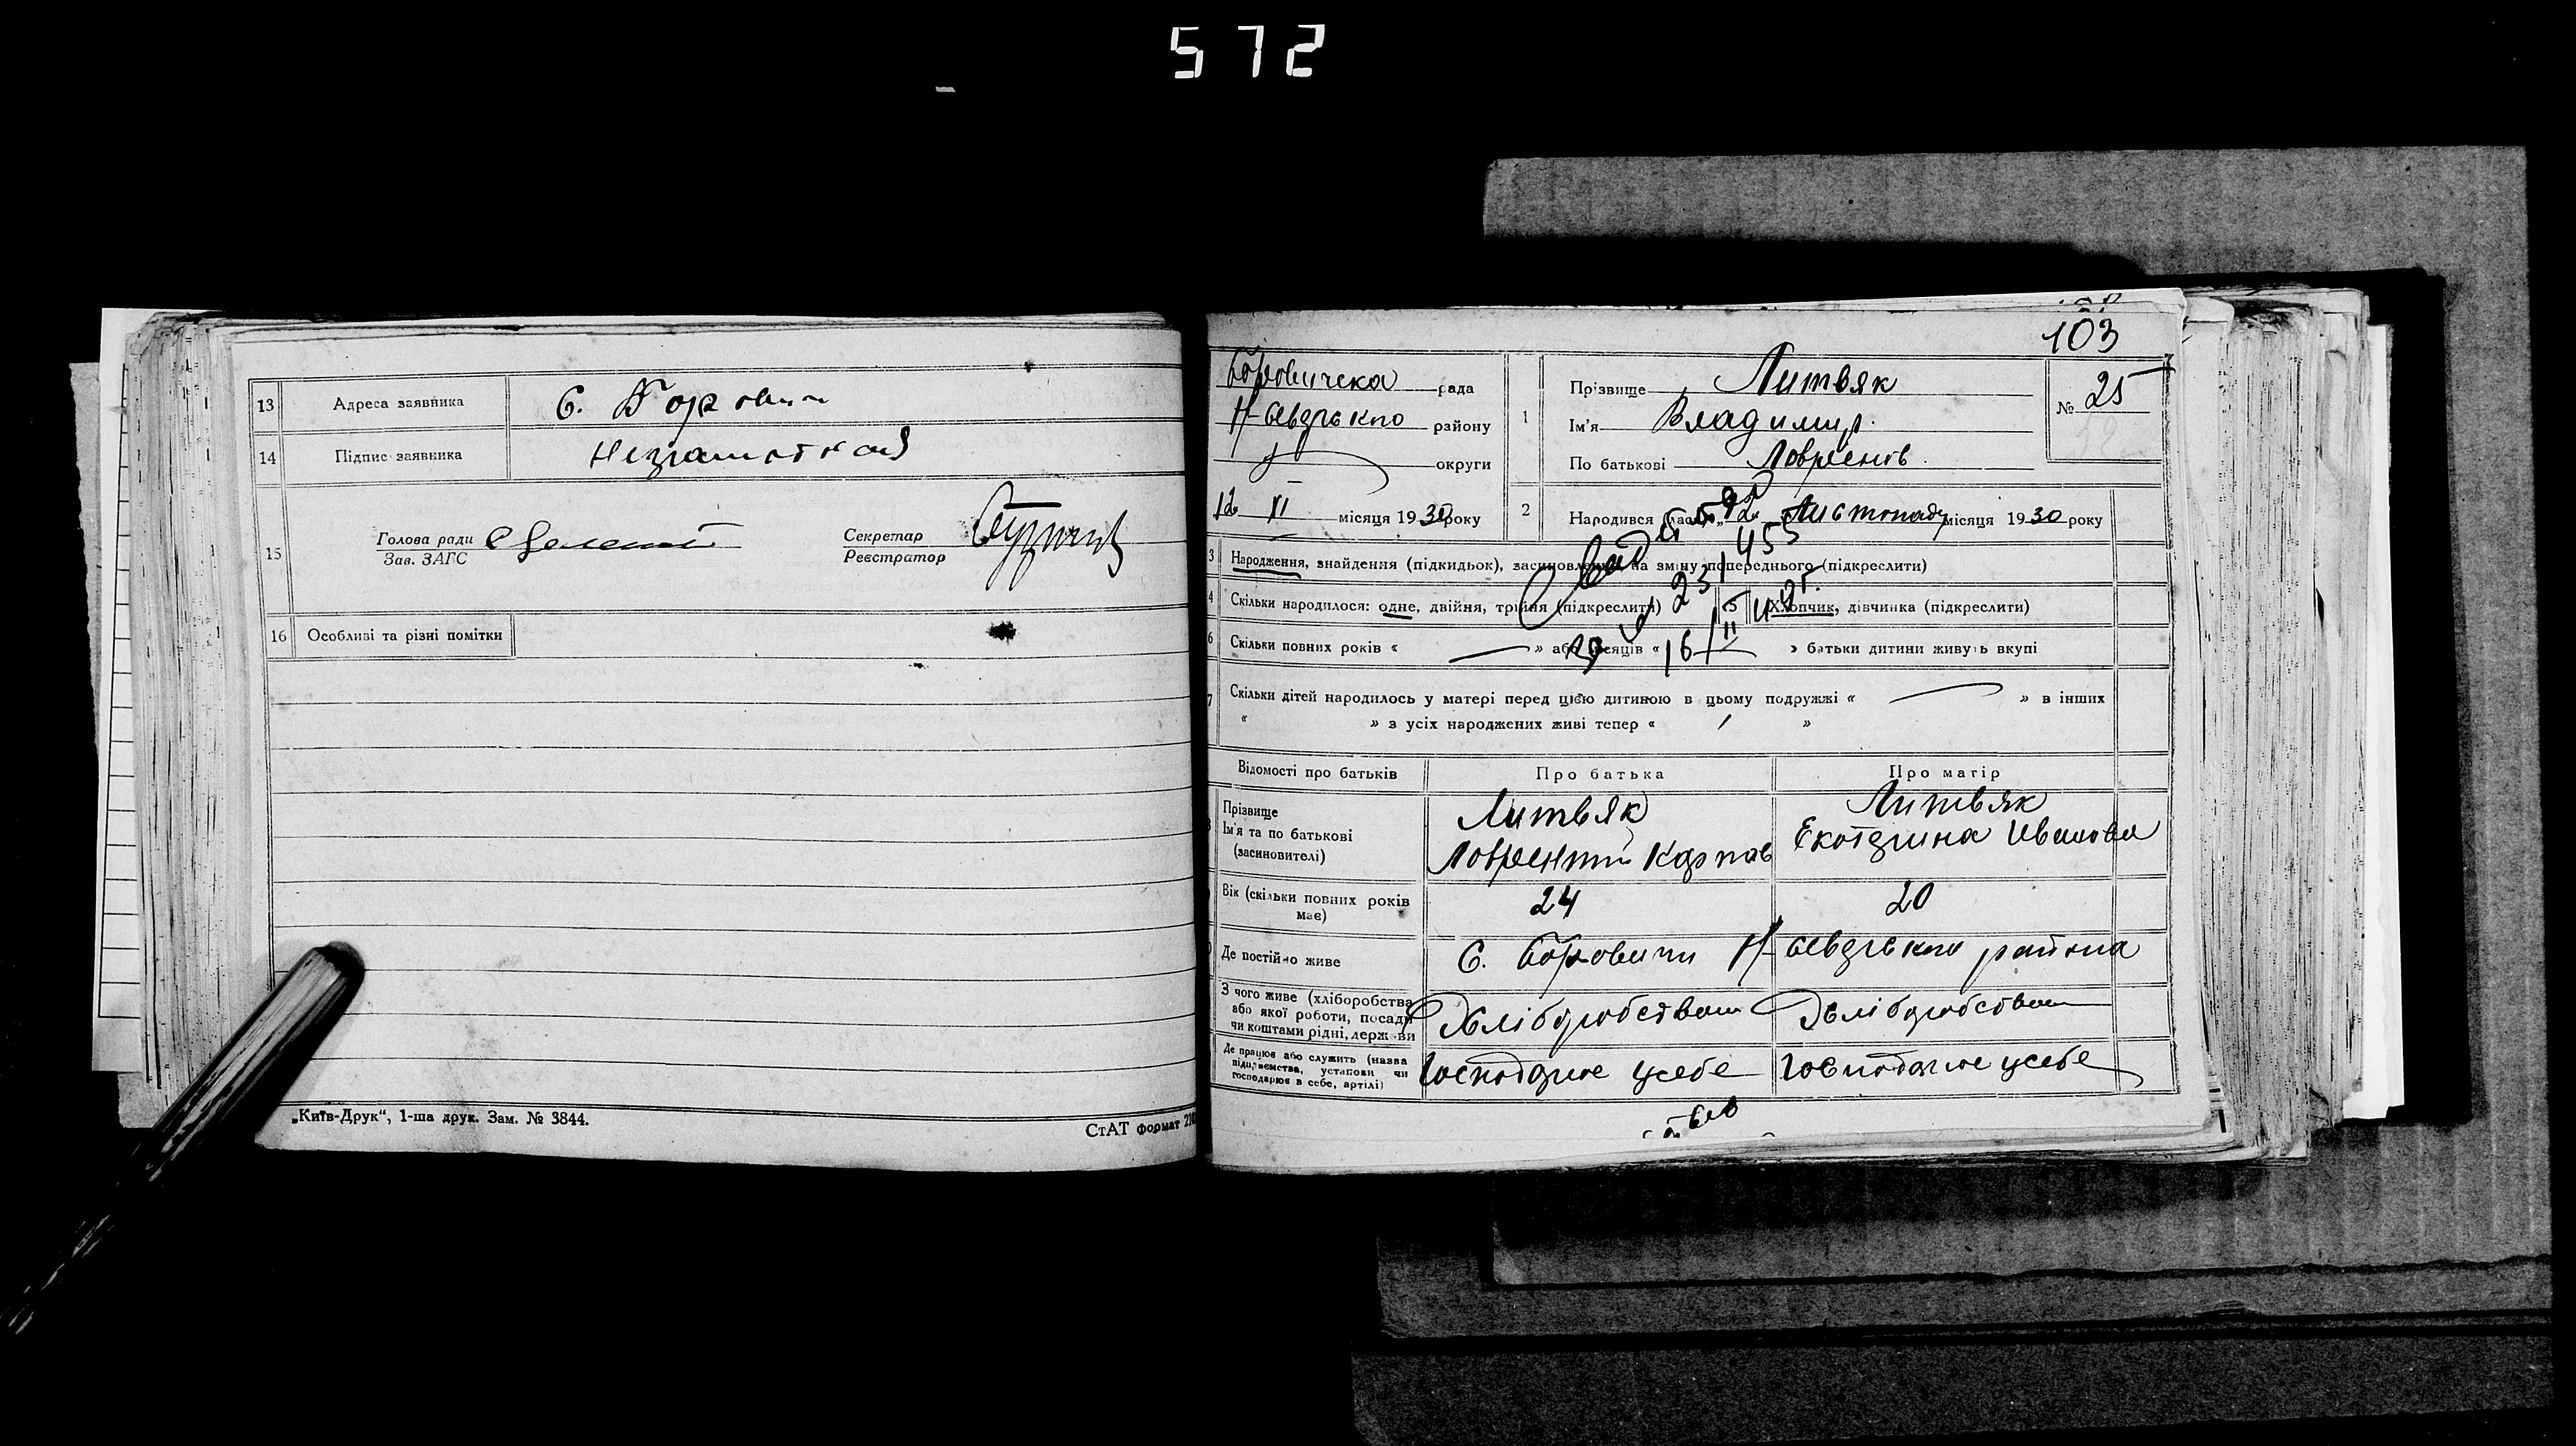 572
13 Адреса заявника С. Боровичи
14 Підпис заявника
15 Голова ради
Зав. ЗАГС
Секретар
Реєстратор
16 Особливі та різні помітки
„Київ-Друк“, 1-ша друк. Зам. № 3844.
СтАТ формат
103
рада
району
округи
12 XI місяця 1930 року
1 Прізвище Литвяк
Ім'я Владимир
По батькові
№ 25
2 Народився 12 Листопаду місяця 1930 року
3 Народження, знайдення (підкидьок), на зміну попереднього (підкреслити)
4 Скільки народилося: одне, двійня, трійня (підкреслити)
5 Хлопчик, дівчинка (підкреслити)
6 Скільки повних років « — » або місяців « — » батьки дитини живуть вкупі
455
23
16/II
7 Скільки дітей народилось у матері перед цією дитиною в цьому подружжі « — » в інших
« » з усіх народжених живі тепер « »
Відомості про батьків Про батька Про матір
Прізвище Литвяк Литвяк
Ім'я та по батькові
(засиновителі)
Ловрентий Карпов
Екотерина Иванова
Вік (скільки повних років має) 24 20
Де постійно живе С. Боровичи района
З чого живе (хліборобства
або якої роботи, посади
чи коштами рідні, держави
Хліборобством Хліборобством
Де працює або служить (назва
підприємства, установи чи
господарює в себе, артілі)
Господарює усебе Господарює усебе